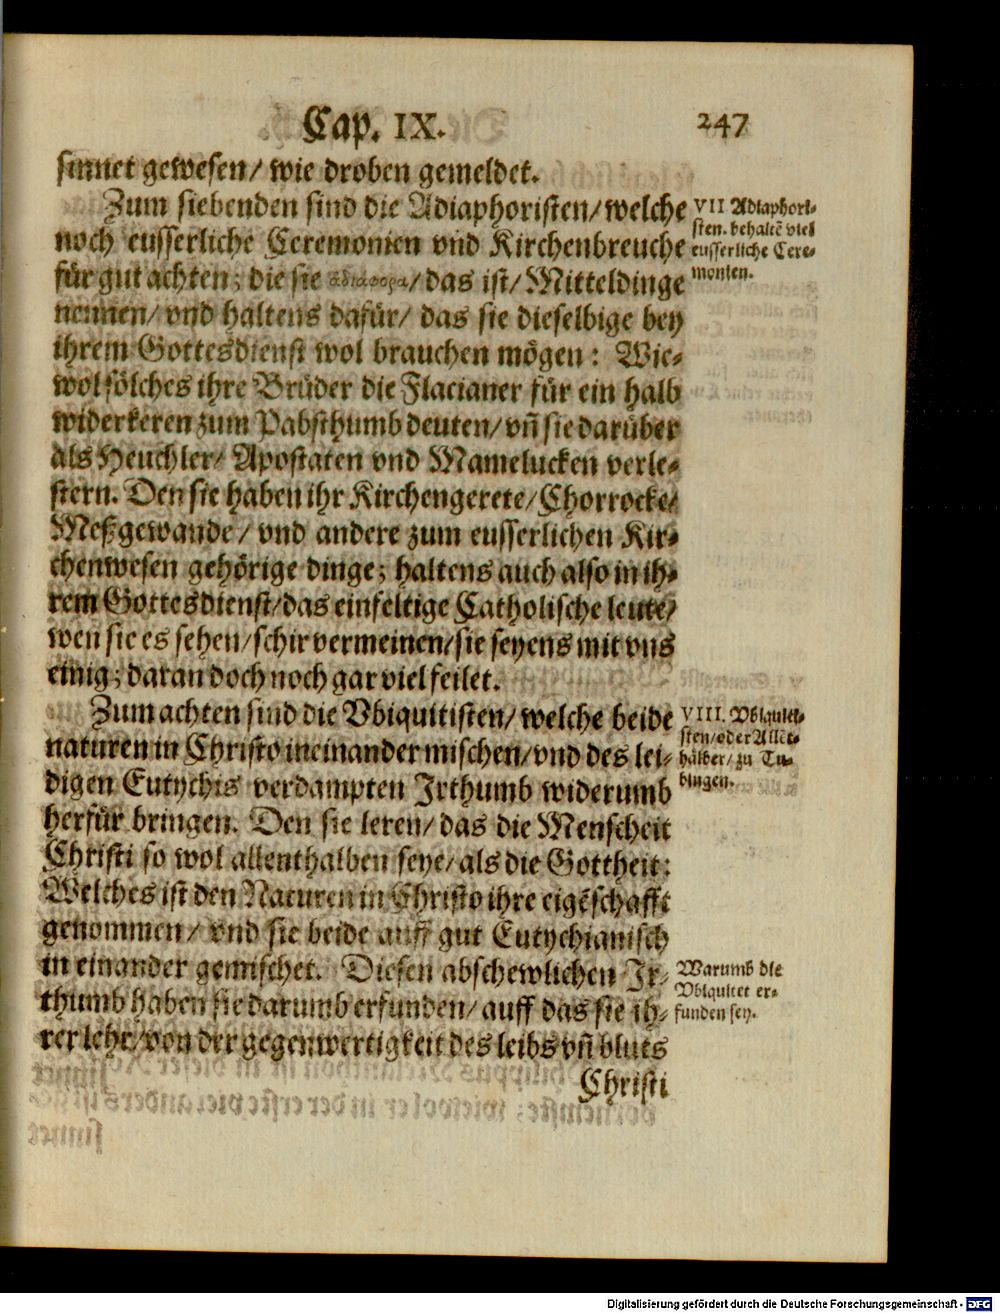 Cap. IX. 247
sinnet gewesen/ wie droben gemeldet.
Zum siebenden sind die Adiaphoristen/ welche
noch eusserliche Ceremonien vnd Kirchenbreuche
für gut achten; die sie αδιαφορα/ das ist/ Mitteldinge
nennen/ vnd haltens dafür/ das sie dieselbige bey
ihrem Gottesdienst wol brauchen mögen: Wie-
wol sölches ihre Brüder die Flacianer für ein halb
widerkeren zum Pabsthumb deuten/ vñ sie darüber
als Heuchler/ Apostaten vnd Mamelucken verle-
stern. Den sie haben ihr Kirchengerete/ Chorrocke/
Meßgewande/ vnd andere zum eusserlichen Kir-
chenwesen gehörige dinge; haltens auch also in ih-
rem Gottesdienst/ das einfeltige Catholische leute/
wen sie es sehen/ schir vermeinen/ sie seyens mit vns
einig; daran doch noch gar viel feilet.
Zum achten sind die Vbiquitisten/ welche beide
naturen in Christo ineinander mischen/ vnd des lei-
digen Eutychis verdampten Irthumb widerumb
herfür bringen. Den sie leren/ das die Menscheit
Christi so wol allenthalben seye/ als die Gottheit:
Welches ist den Naturen in Christo ihre eigẽschafft
genommen/ vnd sie beide auff gut Eutychianisch
in einander gemischet. Diesen abschewlichen Ir-
thumb haben sie darumb erfunden/ auff das sie ih-
rer lehr/ von der gegenwertigkeit des leibs vñ bluts
Christi
VII Adiaphori-
sten. behaltẽ viel
eusserliche Cere-
monien.
VIII. Vbiquiti-
sten/ oder Allet-
hälber/ zu Tu-
bingen.
Warumb die
Vbiquitet er-
funden sey.
Digitalisierung gefördert durch die Deutsche Forschungsgemeinschaft - DFG